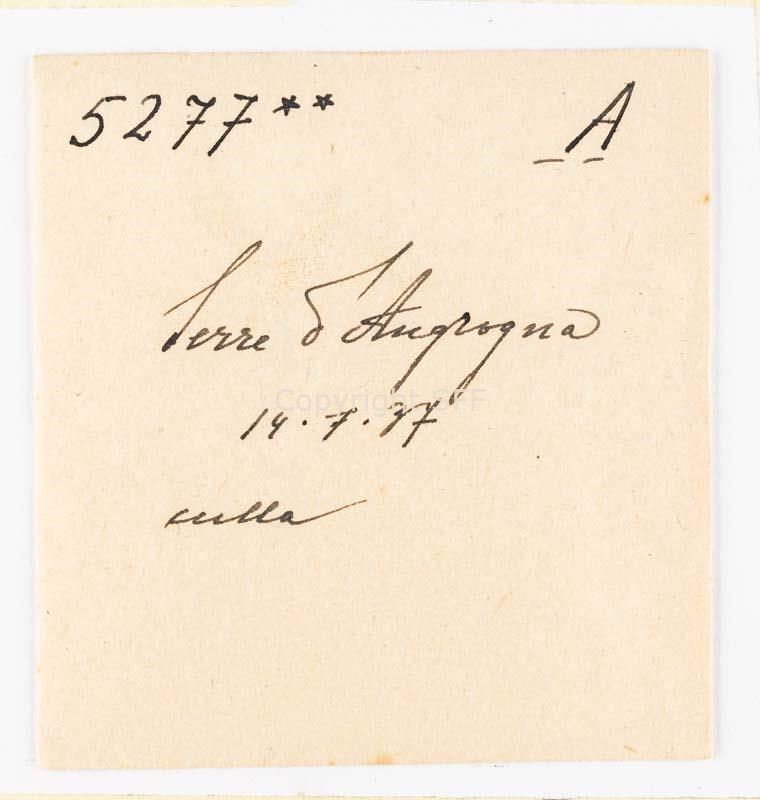 5277** A
Serre d'Angrogna
Copyright SFF
14.7.37
culla